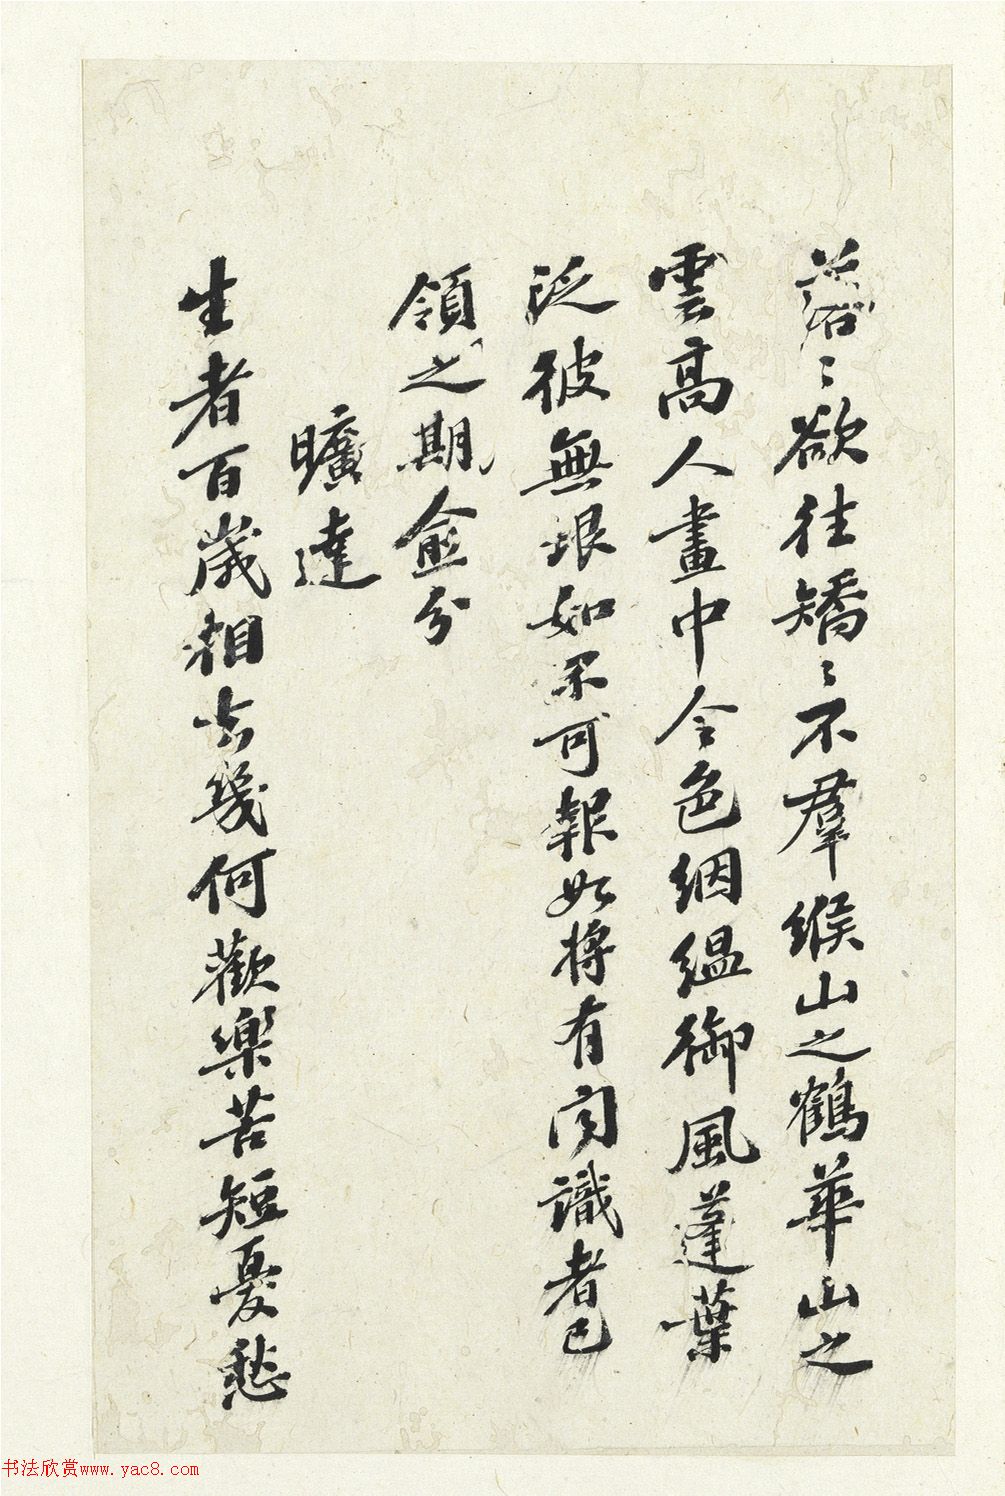 落〻欲往矯〻不羣緱山之鶴華山之
雲高人畫中令色絪緼御風蓬葉
泛彼無垠如不可執如將有聞識者已
領之期愈分
曠達
生者百歲相去幾何歡樂苦短憂愁
书法欣赏www.yac8.com